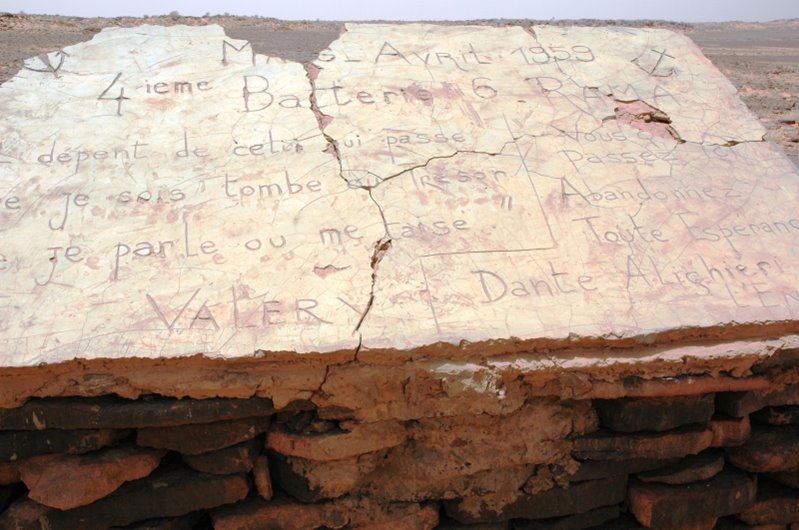 Mars - Avril 1959
4ieme Batterie 6 RAMA
depent de celui qui passe
je sois tombe ou Tresor
je parle ou me taise
VALERY
Vous
Passez
Abandonnez
Toute Esperance
Dante Alighieri